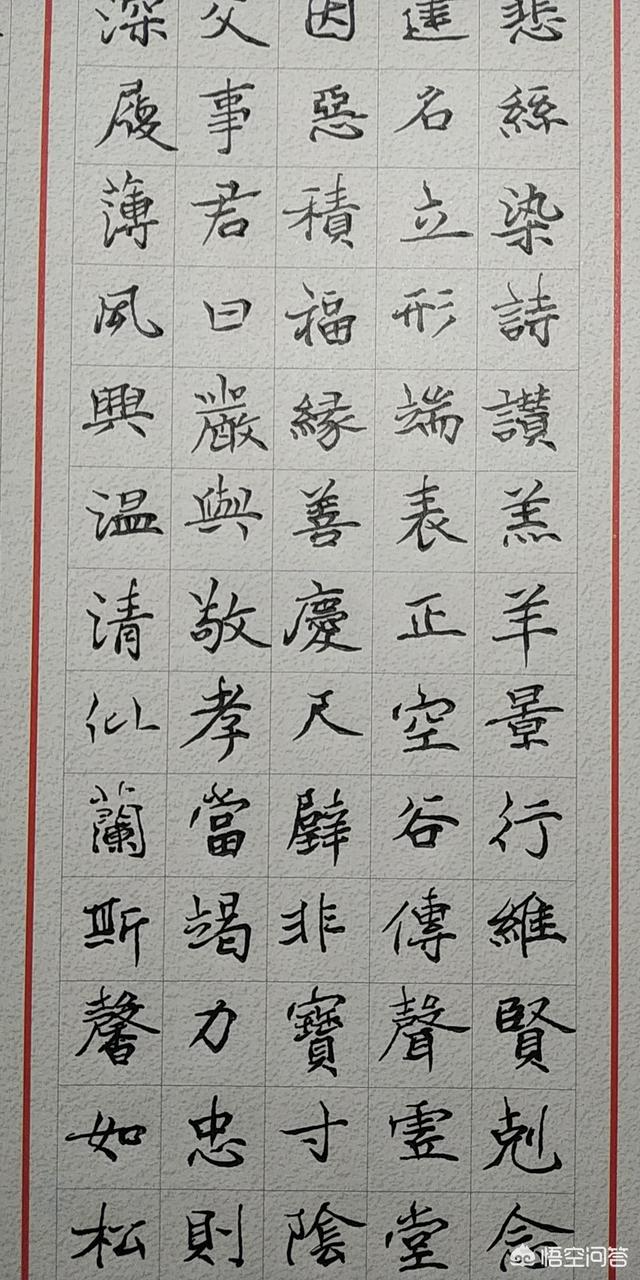 悲絲染詩讃羔羊景行維賢剋念
建名立形端表正空谷傳聲虚堂
因惡積福緣善慶尺璧非寶寸陰
父事君曰嚴與敬孝當竭力忠則
深履薄夙興温清似蘭斯馨如松
悟空问答